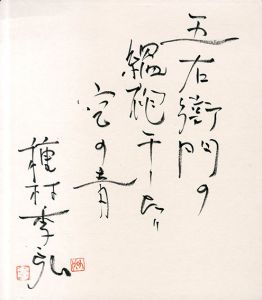 五右衛門の
縕袍干したり
空の青
種村季弘